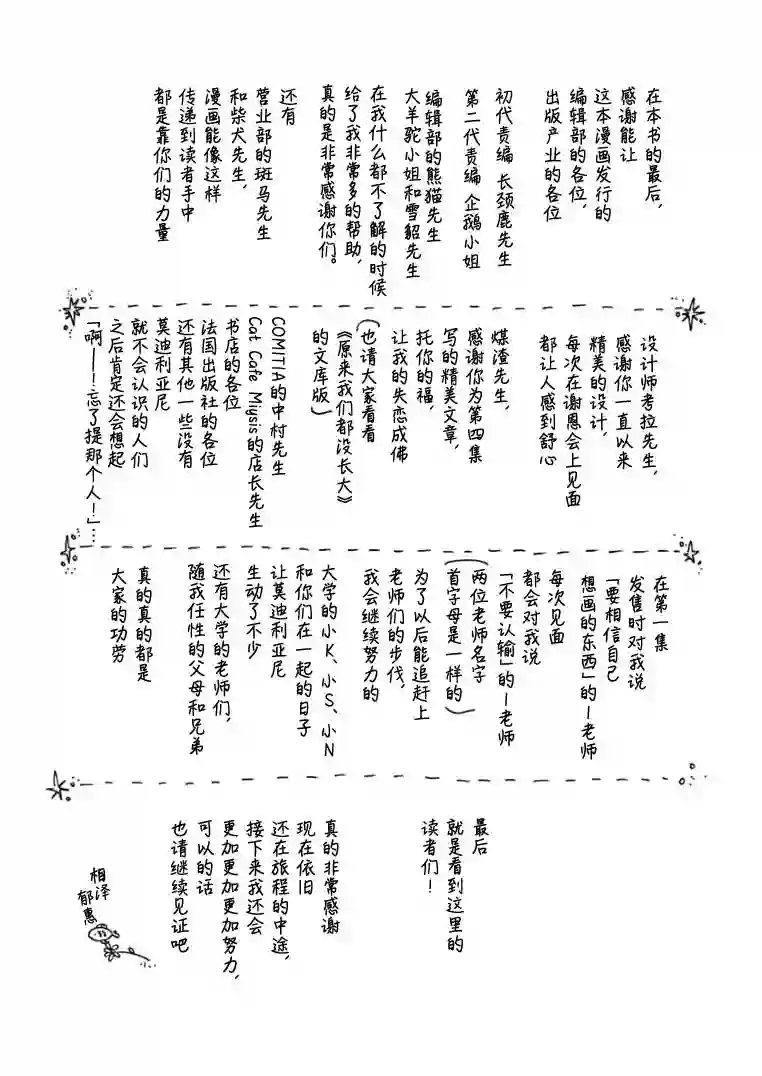 在本书的最后，
感谢能让
这本漫画发行的
编辑部的各位，
出版产业的各位
初代责编 长颈鹿先生
第二代责编 企鹅小姐
编辑部的熊猫先生
大羊驼小姐和雪貂先生
在我什么都不了解的时候
给了我非常多的帮助，
真的是非常感谢你们。
还有
营业部的斑马先生
和柴犬先生，
漫画能像这样
传递到读者手中
都是靠你们的力量
设计师考拉先生，
感谢你一直以来
精美的设计，
每次在谢恩会上见面
都让人感到舒心
煤渣先生，
感谢你为第四集
写的精美文章，
托你的福，
让我的失恋成佛
（也请大家看看
《原来我们都没长大》
的文库版）
COMITIA的中村先生
Cat Cafe Miysis的店长先生
书店的各位
法国出版社的各位
还有其他一些没有
莫迪利亚尼
就不会认识的人们
之后肯定还会想起
「啊——！忘了提那个人！」…
在第一集
发售时对我说
「要相信自己
想画的东西」的I老师
每次见面
都会对我说
「不要认输」的I老师
（两位老师名字
首字母是一样的）
为了以后能追赶上
老师们的步伐，
我会继续努力的
大学的小K、小S、小N
和你们在一起的日子
让莫迪利亚尼
生动了不少
还有大学的老师们，
随我任性的父母和兄弟
真的真的都是
大家的功劳
最后
就是看到这里的
读者们！
真的非常感谢
现在依旧
还在旅程的中途，
接下来我还会
更加更加更加努力，
可以的话
也请继续见证吧
相泽
郁惠